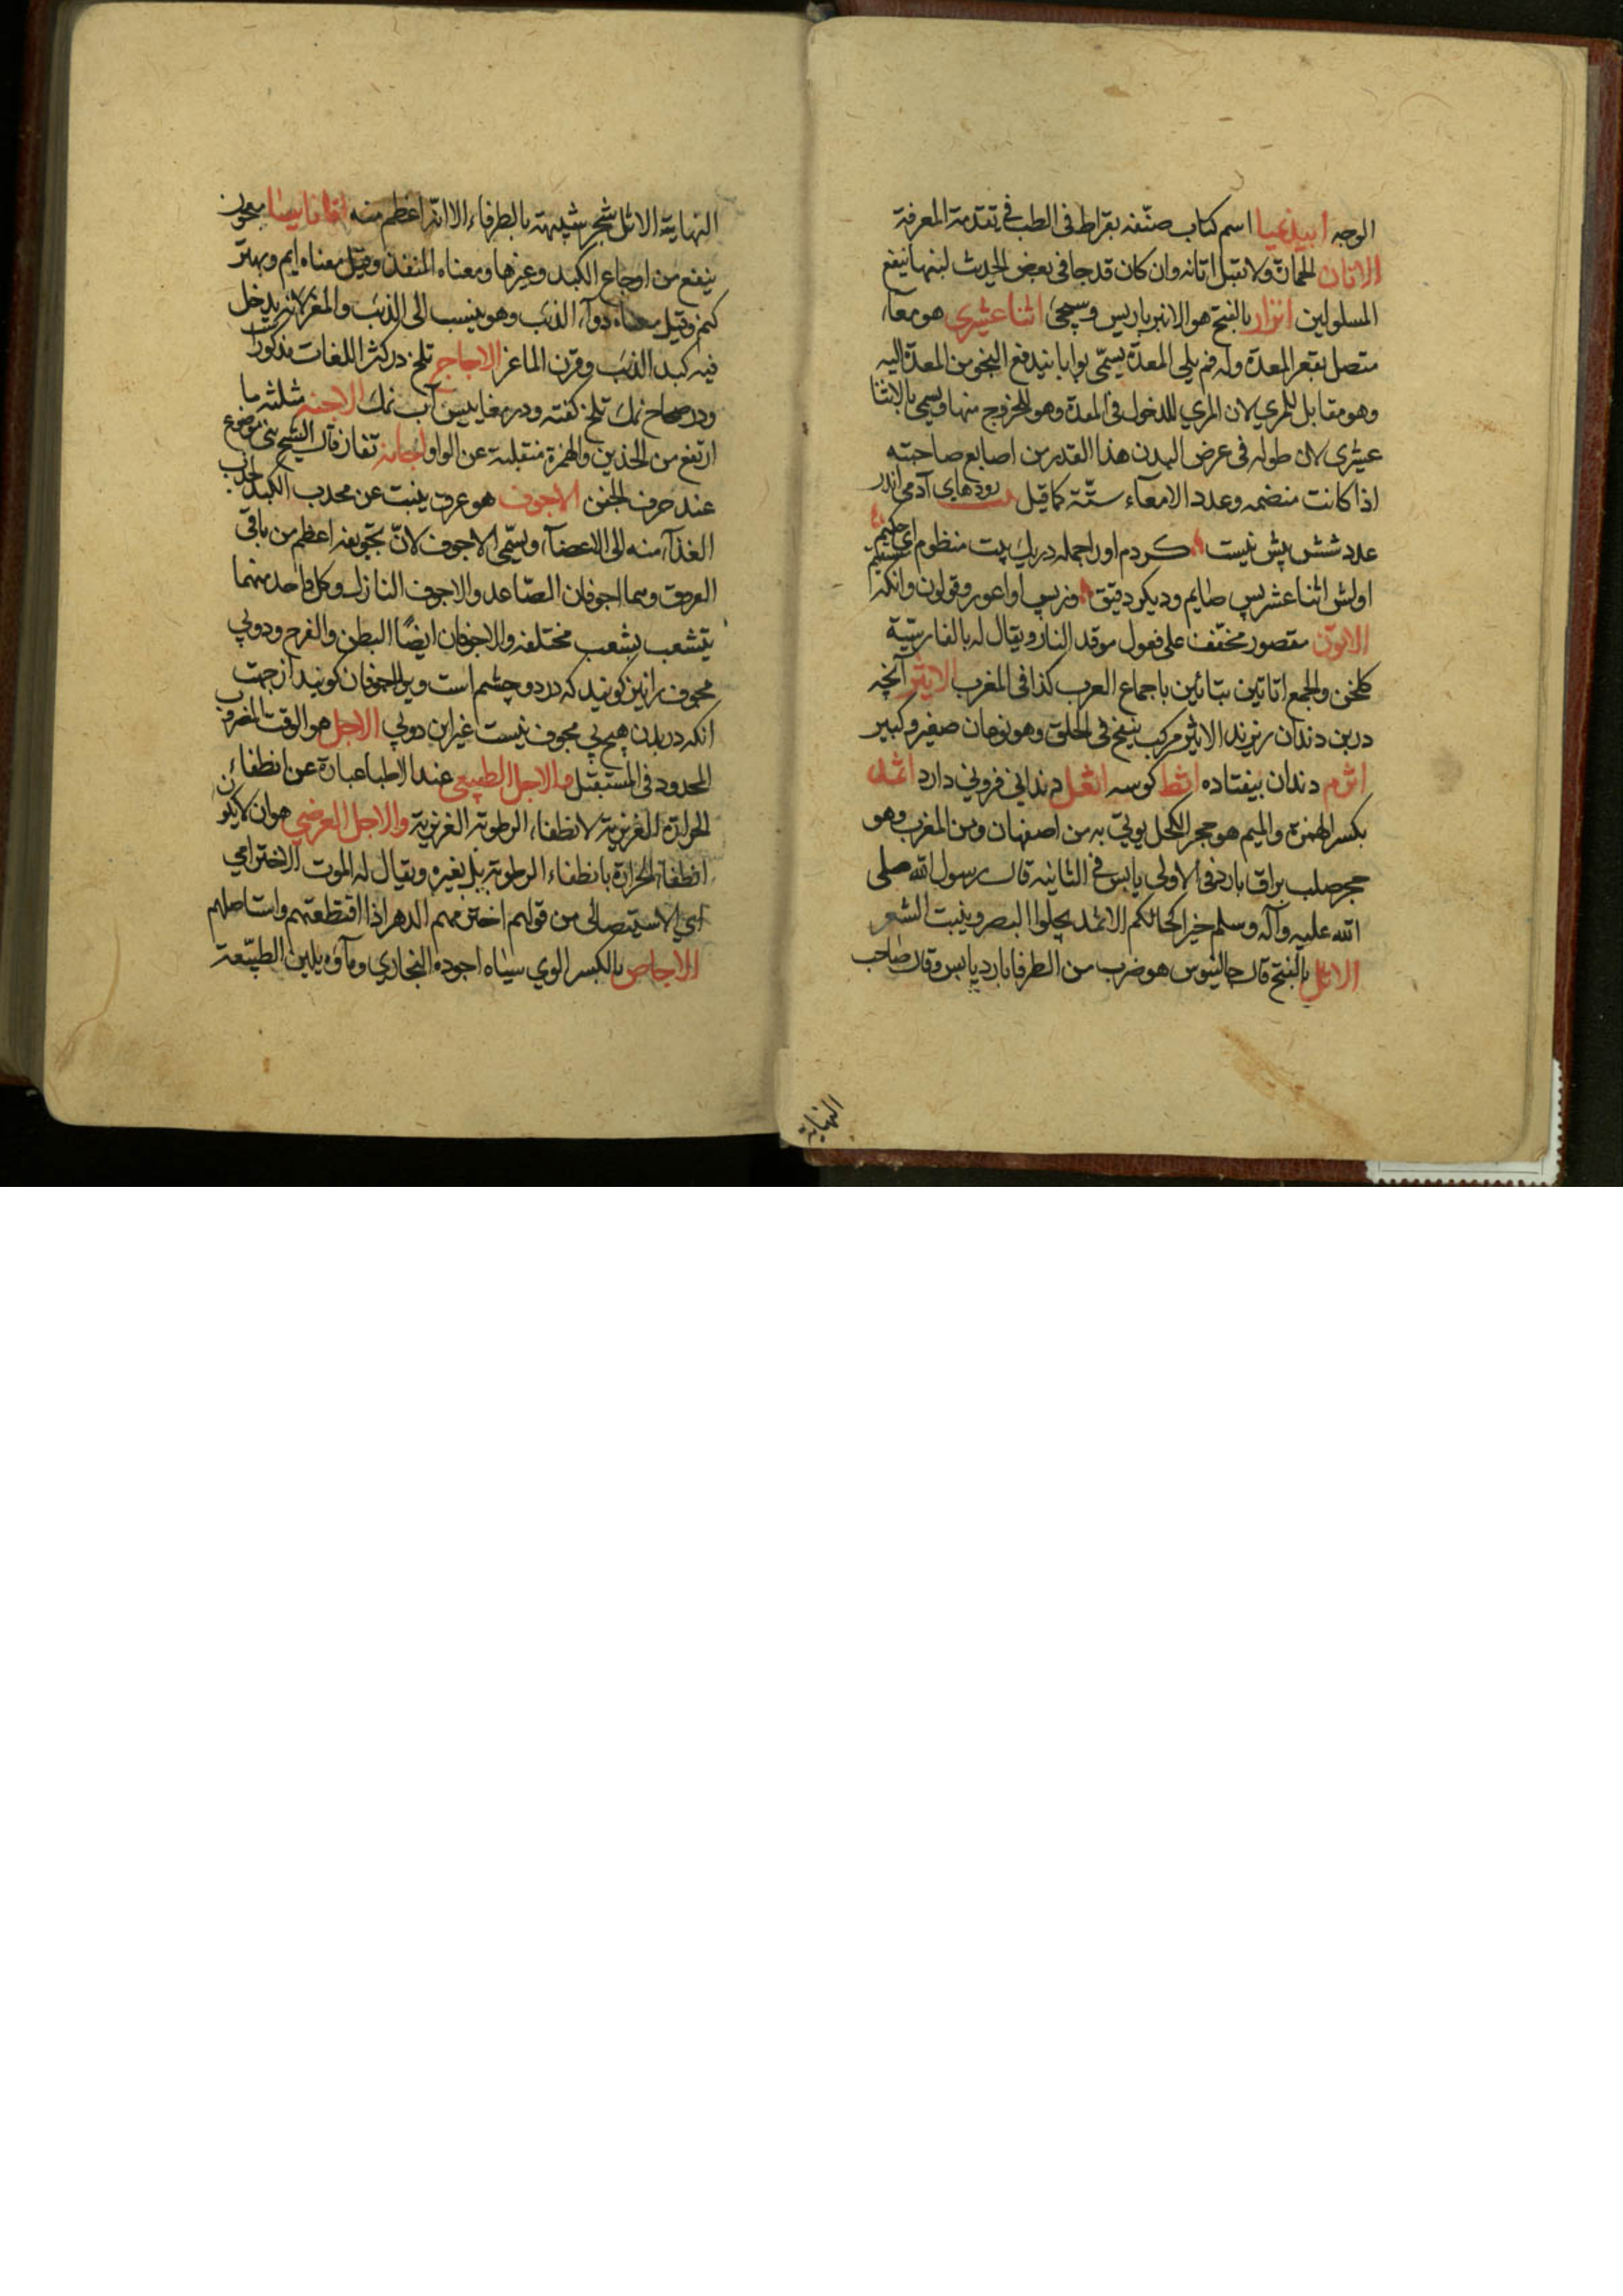 الوجه ابيذيميا اسم كتاب صنّفه بقراط فى الطب فى تقدمة المعرفة
الاتان الحمارة ولا تقل اتانه وان كان قد جا فى بعض الحديث لبنها ينفع
المسلولين اترار بالفتح هو الانبرباريس وسيجئ اثنا عشرى هو معآء
متصل بقعر المعدة وله فم يلى المعدة يسمّى بوابا يندفع الثفل من المعدة اليه
وهو مقابل للمرى لان المرى للدخول فى المعدة وهو للخروج منها ويسمى بالاثنا
عشرى لان طوله فى عرض البدن هذا القدر من اصابع صاحبته
اذا كانت منضمه وعدد الامعآء ستّة كما قيل رودهاى آدمى اندر
عدد شش بيش نيست كردم اورا جمله در يك بيت منظوم اى حكيم
اولش اثنا عشر پس صايم وديكر دقيق وز پس او اعور وقولون وانكه
الاتون مقصور مخفّف على فعول موقد النار ويقال له بالفارسيّة
كلخن والجمع اتاتين بتائين باجماع العرب كذا فى المغرب الاثر آنچه
در بن دندان ريزند الاثير مركب ينفخ فى الحلق وهو نوعان صغير وكبير
اثرم دندان بيفتاده اثط كوسه اثعل دندانى فزونى دارد اثمد
بكسر الهمزة والميم هو حجر الكحل يوتى به من اصفهان ومن المغرب وهو
حجر صلب براق بارد فى الاولى يابس فى الثانيه قال رسول الله صلى
الله عليه وآله وسلم خير اكحالكم الاثمد يجلوا البصر وينبت الشعر
الاثل بالفتح قال جالينوس هو ضرب من الطرفا بارد يابس وقال صاحب
النهاية
النهاية الاثل شجر شبيهة بالطرفاء الا انّه اعظم منه اثاناسيا معجون
ينفع من اوجاع الكبد وغيرها ومعناه المنقذ وقيل معناه ايم وبهتر
كنم وقيل معناه دوآء الذئب وهو ينسب الى الذئب والمغز لانه يدخل
فيه كبد الذئب وقرن الماعز الاجاج تلخ در كثر اللغات مذكور است
ودر صحاح نمك تلخ كفته ودر مغاييس آب نمك الاجنه مثلثه ما
ارتفع من الخدين والهمزة منقلبة عن الواو اجانه تغار قال الشيخ هى موضع
عند حرف الجفن الاجوف هو عرق ينبت عن محدب الكبد لجذب
الغذآء منه الى الاعضآء ويسمّى الاجوف لانّ تجويفه اعظم من باقى
العروق وهما اجوفان الصّاعد والاجوف النازل وكل واحد منهما
يتشعب بشعب مختلفه والاجوفان ايضًا البطن والفرج ودو پى
مجوف را نيز كويند كه در دو چشم است ويرا اجوفان كويند از جهت
انكه در بدن هيچ پى مجوف نيست غير اين دو پى الاجل هو الوقت المفروض
المحدود فى المستقبل والاجل الطبيعى عند الاطبا عبارة عن انطفاء
الحرارة الغريزية لانطفاء الرطوبة الغريزية والاجل العرضى هو ان لا يكون
انطفاء الحرارة بانطفاء الرطوبة بل بغيره ويقال له الموت الاخترامى
اى الاستيصالى من قولهم اخترمهم الدهر اذا اقتطعهم واستاصلهم
الاجاص بالكسر الوى سياه اجوده البخارى ومآؤه يلين الطبيعة